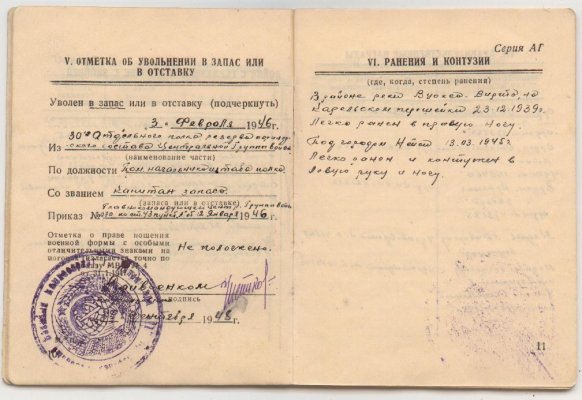 V. ОТМЕТКА ОБ УВОЛЬНЕНИИ В ЗАПАС ИЛИ
В ОТСТАВКУ
Уволен в запас или в отставку (подчеркнуть)
3 Февраля 1946 г.
30го Отдельного полка резерва
Из состава Центральной Группы войск
(наименование части)
По должности Пом. начальника штаба полка
Со званием Капитан запаса
(запаса или в отставке)
Главнокомандующего Группы Войск
Приказ № 12 Января 1946 г.
Отметка о праве ношения
военной формы с особыми
отличительными знаками на
Не положено.
подпись
1946 г.
Серия АГ
VI. РАНЕНИЯ И КОНТУЗИИ
(где, когда, степень ранения)
В районе реки Вуокса-Вирта на
Карельском перешейке 23.12.1939г.
Легко ранен в правую ногу.
Под городом 13.03.1945г.
Легко ранен и контужен в
левую руку и ногу.
11